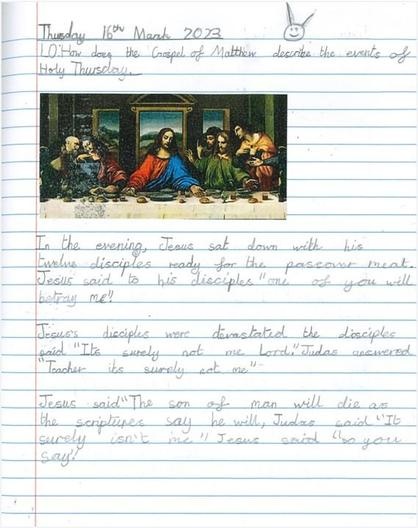 Thursday 16th March 2023
LO:How does the Gospel of Matthew describe the events of
Holy Thursday.
In the evening, Jesus sat down with his
twelve disciples ready for the passover meat.
Jesus said to his disciples "one of you will
betray me"
Jesus's disciples were devastated the disciples
said "Its surely not me Lord." Judas answered
"Teacher its surely not me"
Jesus said "The son of man will die as
the scriptures say he will, Judas said "It
surely isn't me" Jesus said "so you
say"